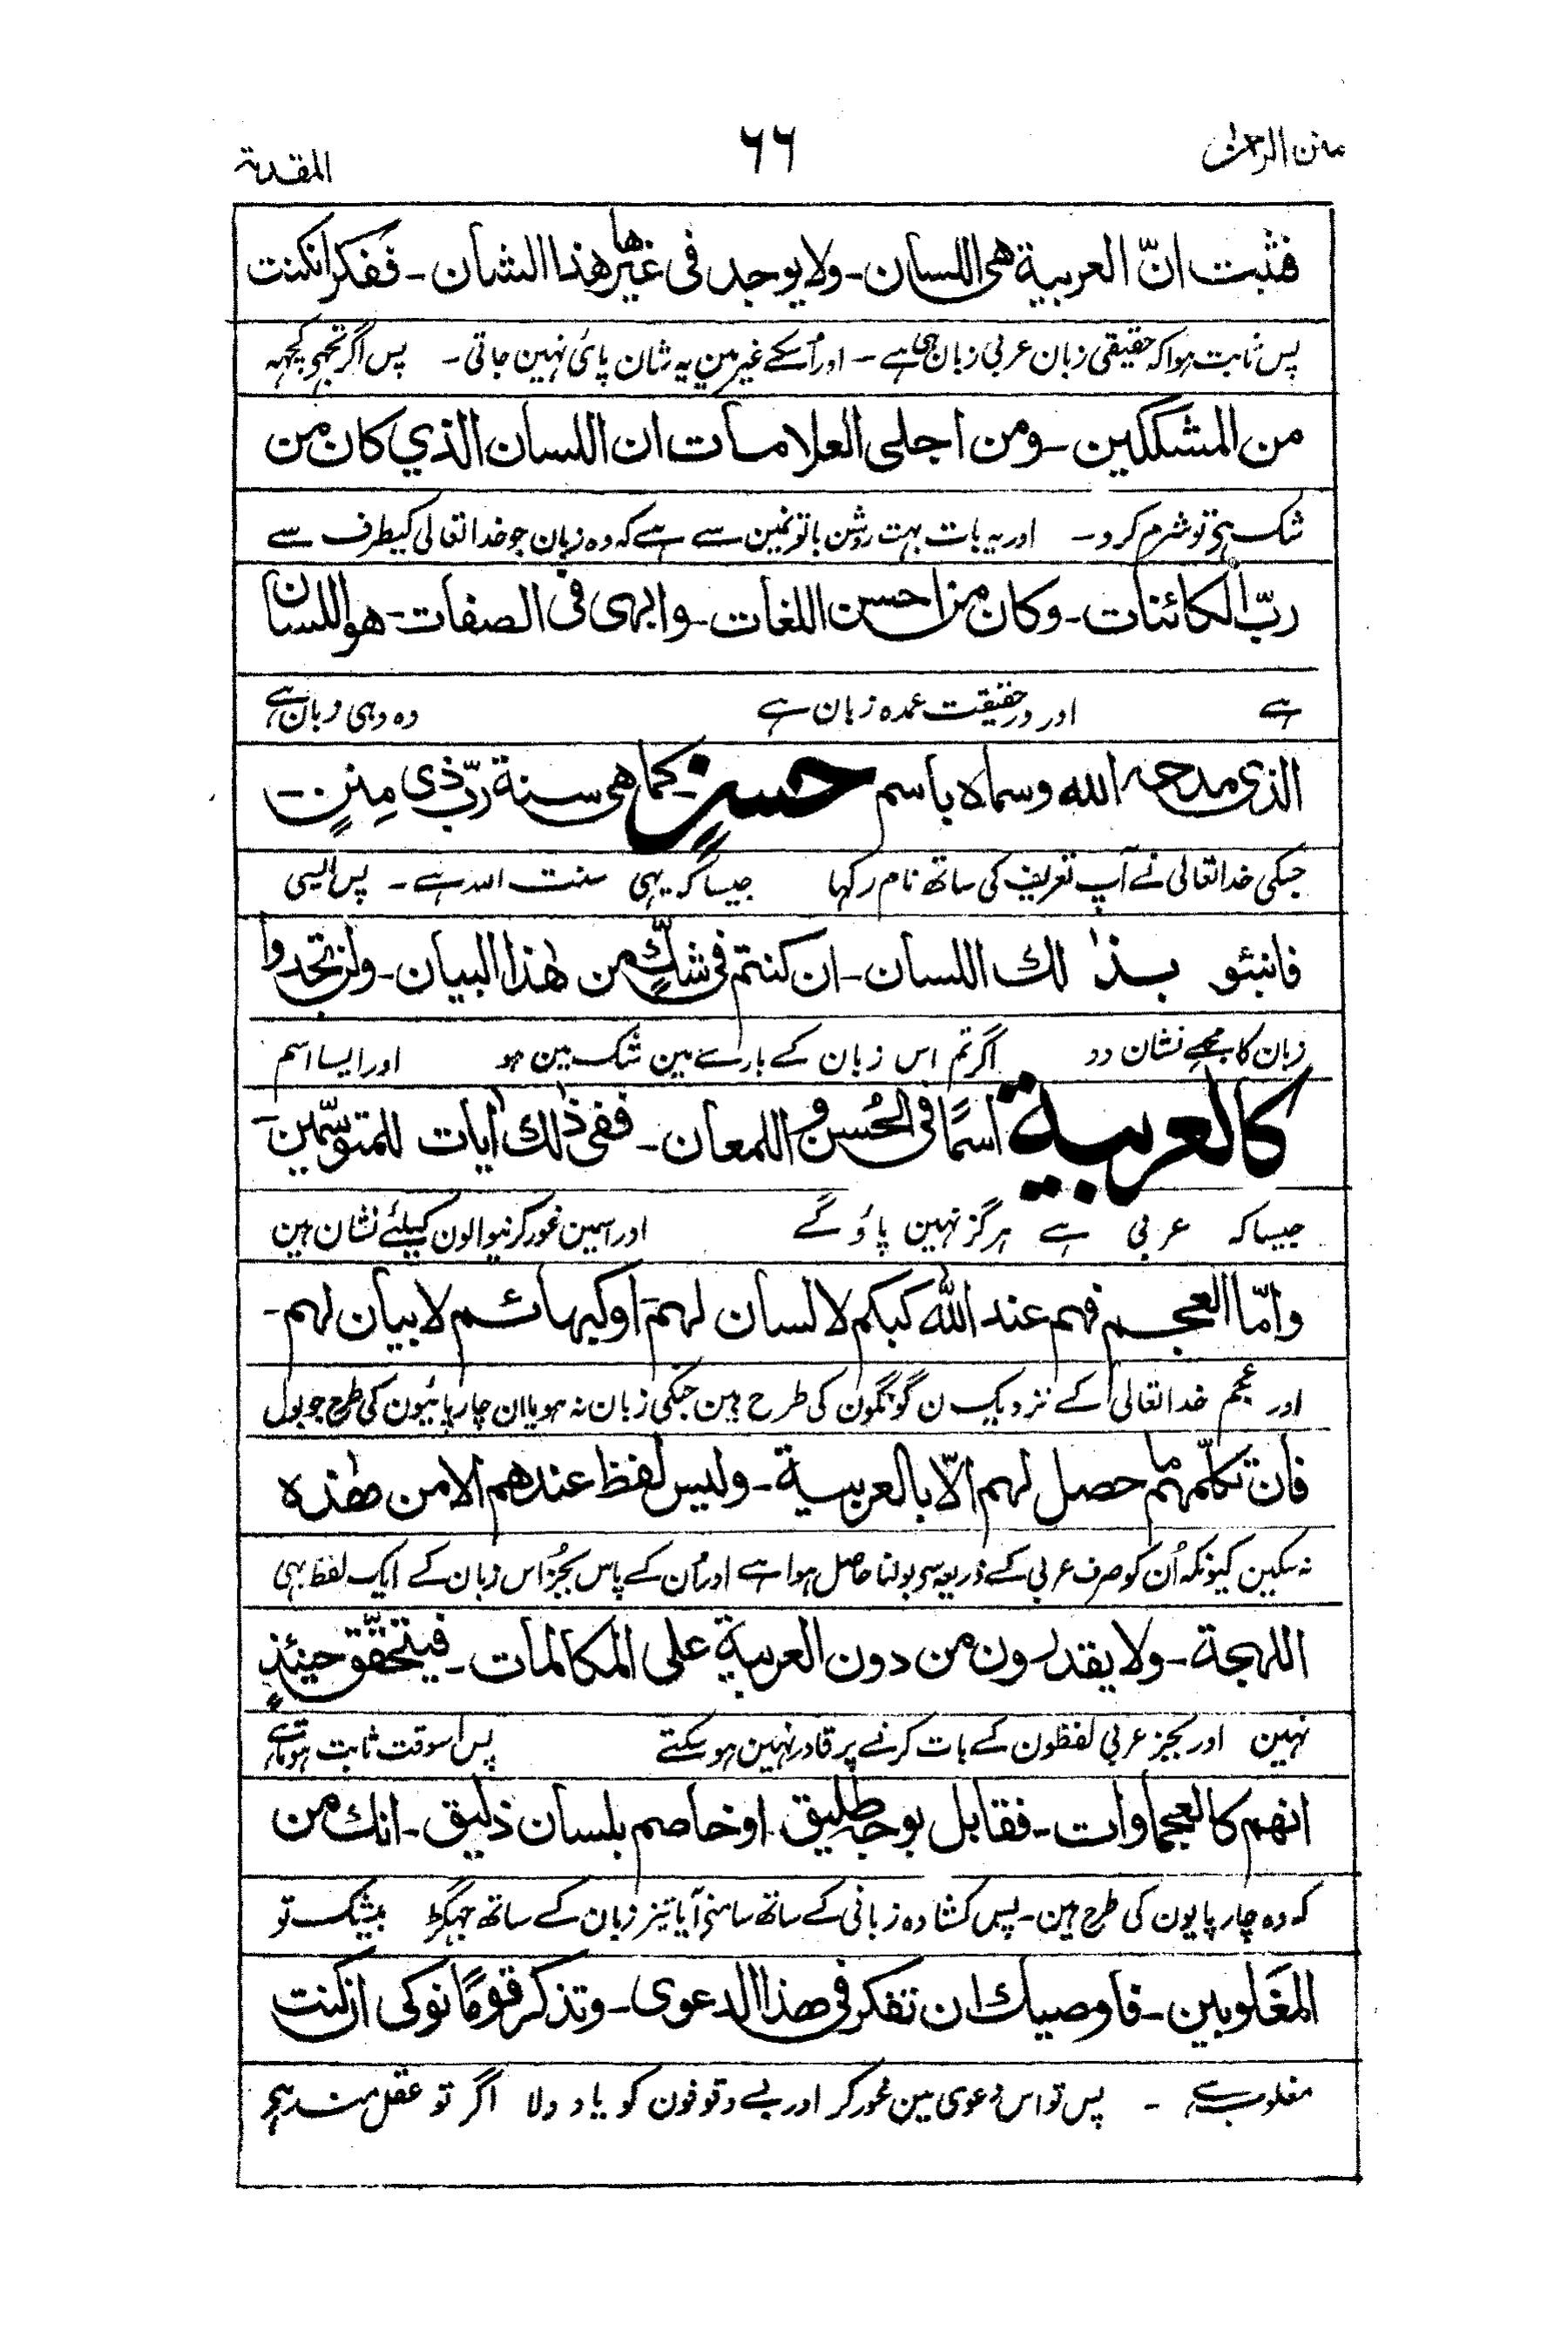 منن الرحمٰن
٦٦
المقدمة
فثبت انّ العربية هى اللسان۔ ولا يوجد فى غيرها هذا الشان۔ ففكر ان كنت
پس ثابت ہوا کہ حقیقی زبان عربی زبان ہی ہے۔ اور اُسکے غیر مین یہ شان پائی نہین جاتی۔ پس اگر تجھے کچھہ
من المشككين۔ ومن اجلى العلامات ان اللسان الذي كان من
شک ہی تو شرم کرو۔ اور یہ بات بہت روشن باتونمین سے ہے کہ وہ زبان جو خدا تعالی کیطرف سے
ربّ الكائنات۔ وكان من احسن اللغات۔ وابهى فى الصفات۔ هو اللسان
ہے اور درحقیقت عمدہ زبان ہے وہ وہی زبان ہے
الذى مدحه الله وسماه باسم حسنٍ۔ كما هى سنة ربّ ذى مِننٍ۔
جسکی خدا تعالی نے آپ تعریف کی ساتھ نام رکہا جیسا کہ یہی سنت اللہ ہے۔ پس ایسی
فانبئو بذٰلك اللسان۔ ان كنتم فى شكٍّ من هٰذا البيان۔ ولن تجدوا
زبان کا مجھے نشان دو اگر تم اس زبان کے بارے مین شک مین ہو اور ایسا اسم
كالعربية اسمًا فى الحُسن و اللمعان۔ ففى ذٰلك اٰيات للمتوسّمين۔
جیسا کہ عربی ہے ہرگز نہین پاؤ گے اور اسمین غور کرنیوالون کیلئے نشان ہین
وامّا العجم فهم عند اللّٰه كبكم لا لسان لهم۔ او كبهائم لا بيان لهم۔
اور عجم خدا تعالی کے نزدیک ن گونگون کی طرح ہین جنکی زبان نہ ہو یا ان چارپائیون کی طرح جو بول
فان تكلّمهم ما حصل لهم الّا بالعربية۔ وليس لفظ عندهم الا من هٰذه
نہ سکین کیونکہ اُن کو صرف عربی کے ذریعہ سی بولنا حاصل ہوا ہے اور اُن کے پاس بجُز اس زبان کے ایک لفظ بہی
اللهجة۔ ولا يقدرون من دون العربية على المكالمات۔ فيتحقّق حينئذٍ
نہین اور بجز عربی لفظون کے بات کرنے پر قادر نہین ہو سکتے پس اسوقت ثابت ہوتا ہے
انهم كالعجماوات۔ فقابل بوجه طليق۔ او خاصم بلسان ذليق۔ انك من
کہ وہ چارپایون کی طرح ہین۔ پس کشادہ زبانی کے ساتھ سامنے آ یا تیز زبان کے ساتھ جہگڑ بیشک تو
المغلوبين۔ فاوصيك ان تفكر فى هذا الدعوى۔ وتذكر قومًا نوكى ان كنت
مغلوب ہے۔ پس تو اس دعوی مین غور کر اور بے وقوفون کو یاد دلا اگر تو عقل مند ہے